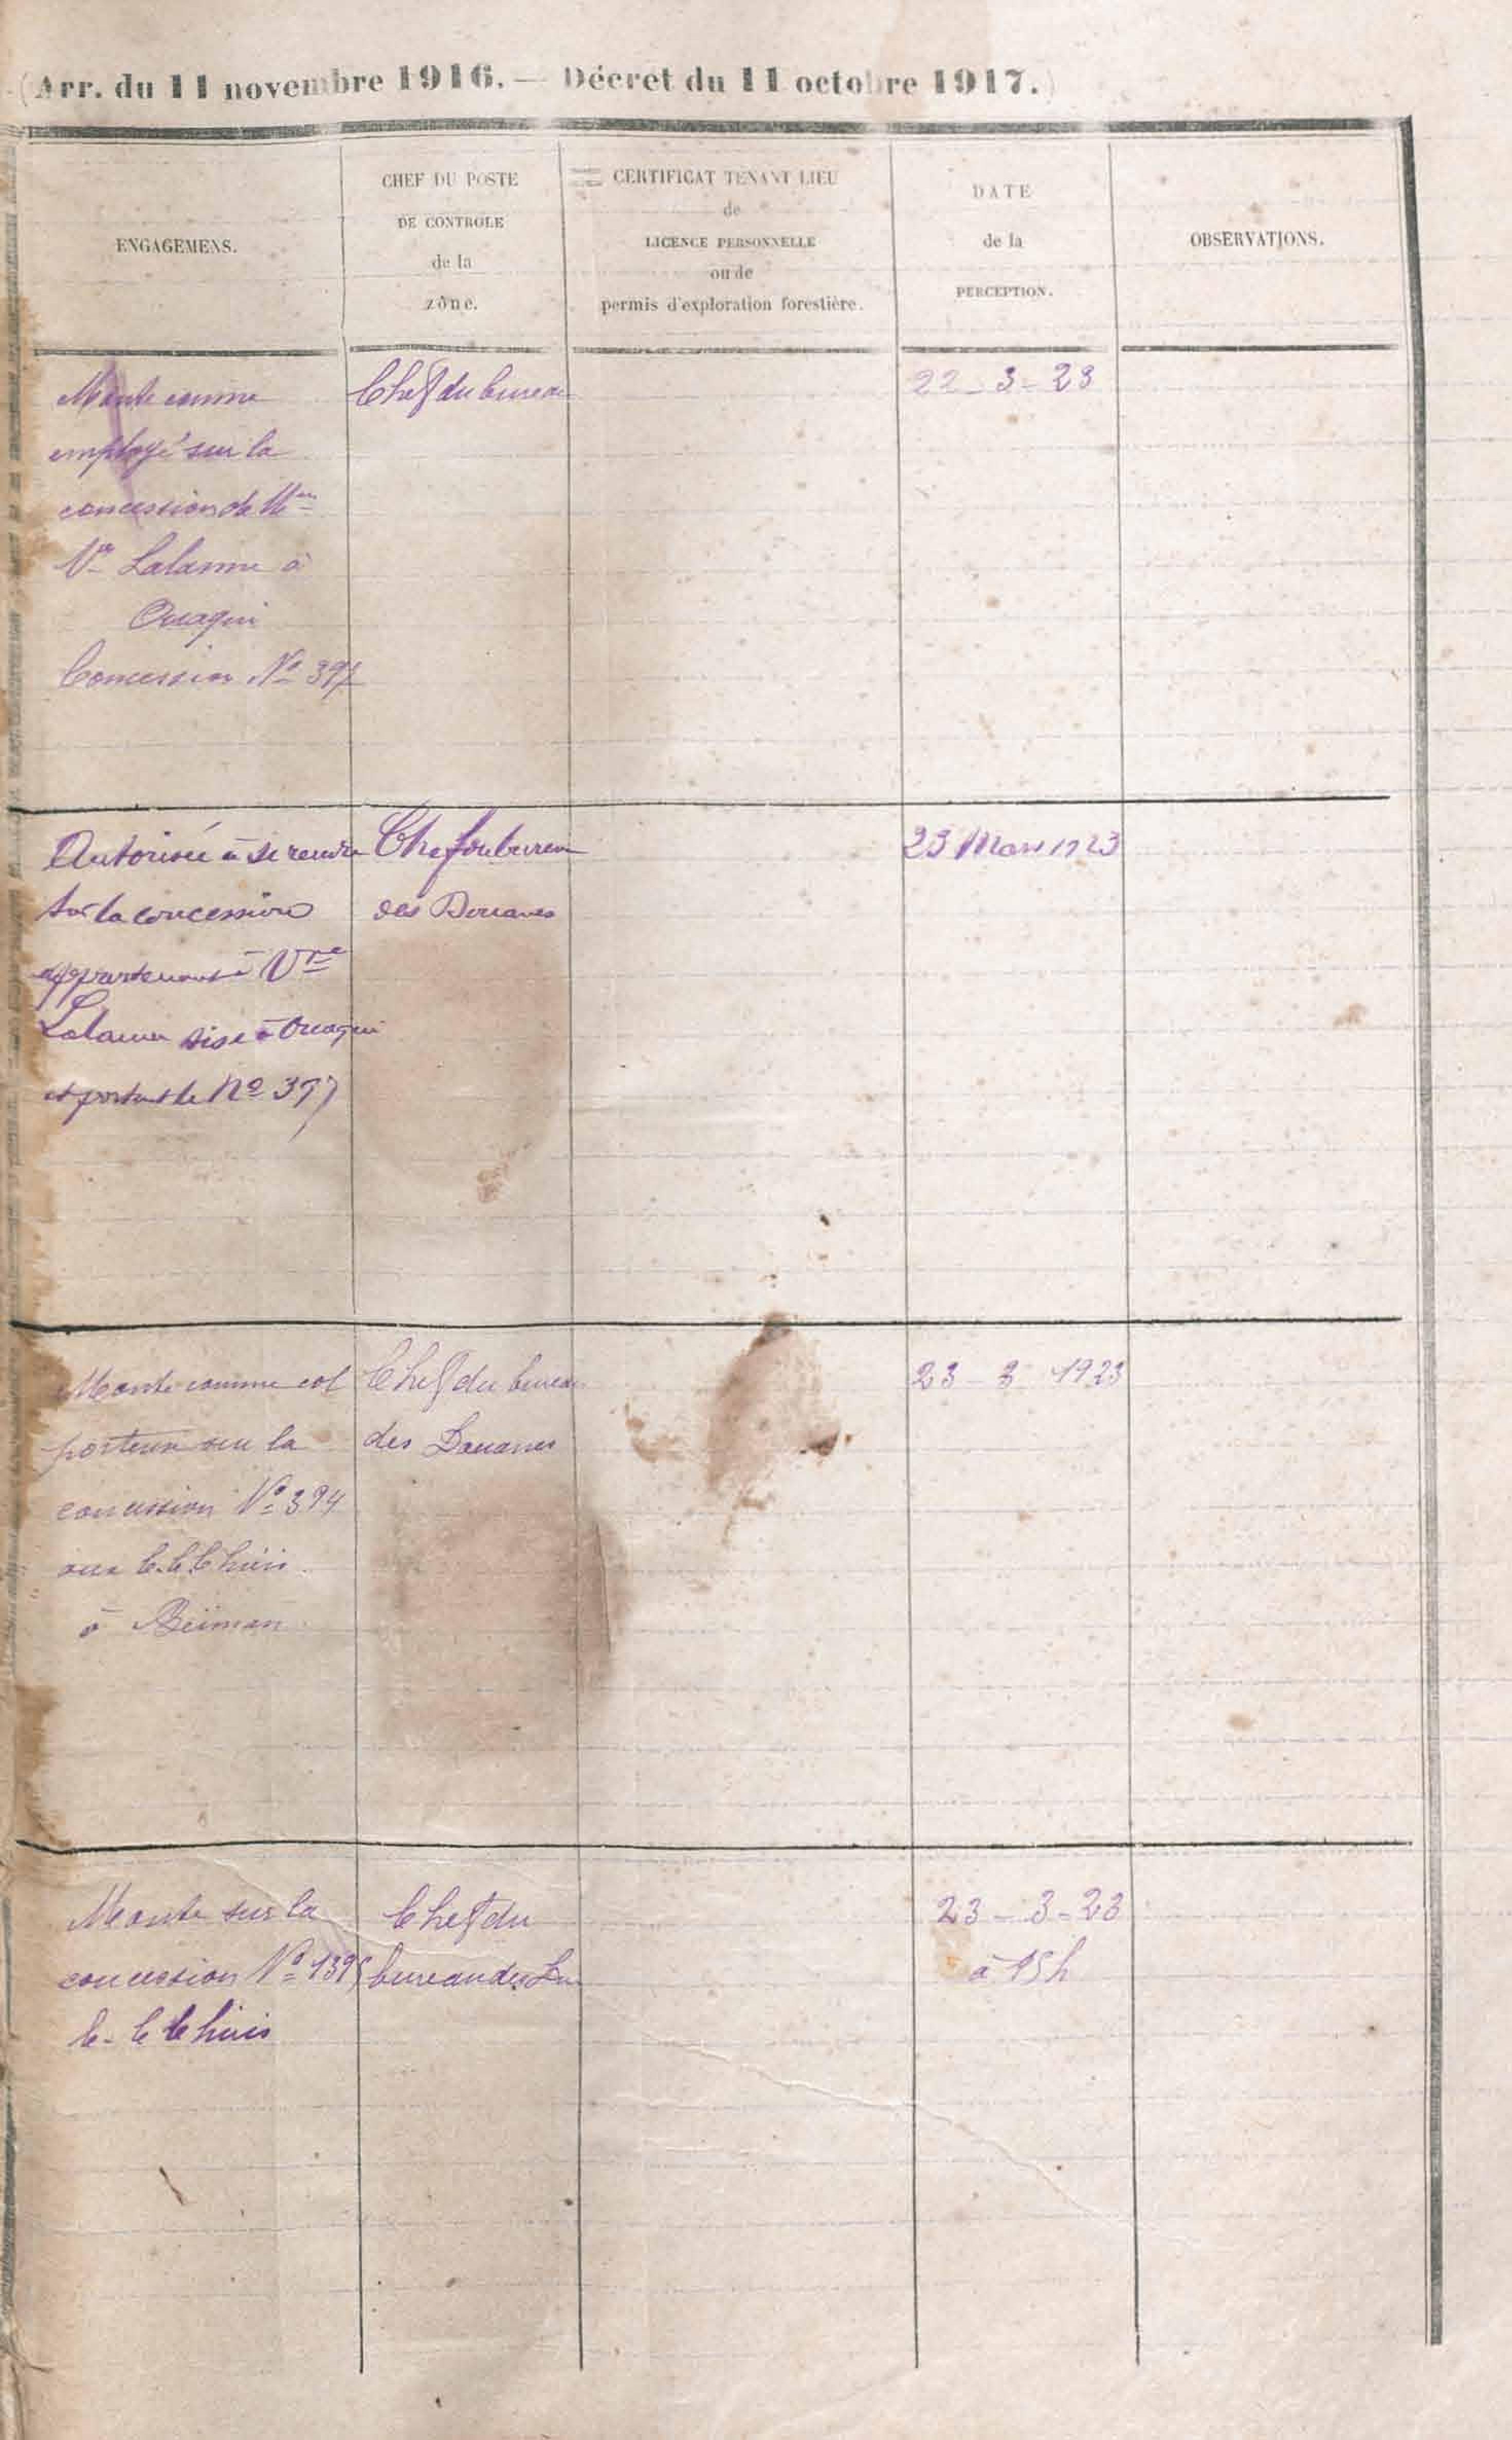 (Arr. du 11 novembre 1916. — Décret du 11 octobre 1917.)
ENGAGEMENS.
CHEF DU POSTE
DE CONTROLE
de la
zône.
CERTIFICAT TENANT LIEU
de
LICENCE PERSONNELLE
ou de
permis d'exploration forestière.
DATE
de la
PERCEPTION.
OBSERVATIONS.
Monte comme
employé sur la
concession de Mme
Vve Lalanne à
Ouaqui
Concession No 397
Chef du bureau
22 - 3 - 23
Autorisée à se rendre
sur la concession
appartenant à Vve
Lalanne sise à Ouaqui
et portant le No 397
Chef du bureau
des Douanes
23 Mars 1923
Monte comme col
porteur sur la
concession No 394
aux C. C. Chiris
à Beïman
Chef du bureau
des Douanes
23 - 3 - 1923
Monte sur la
concession No 1395
C. C. Chiris
Chef du
bureau des
23 - 3 - 23
à 15h